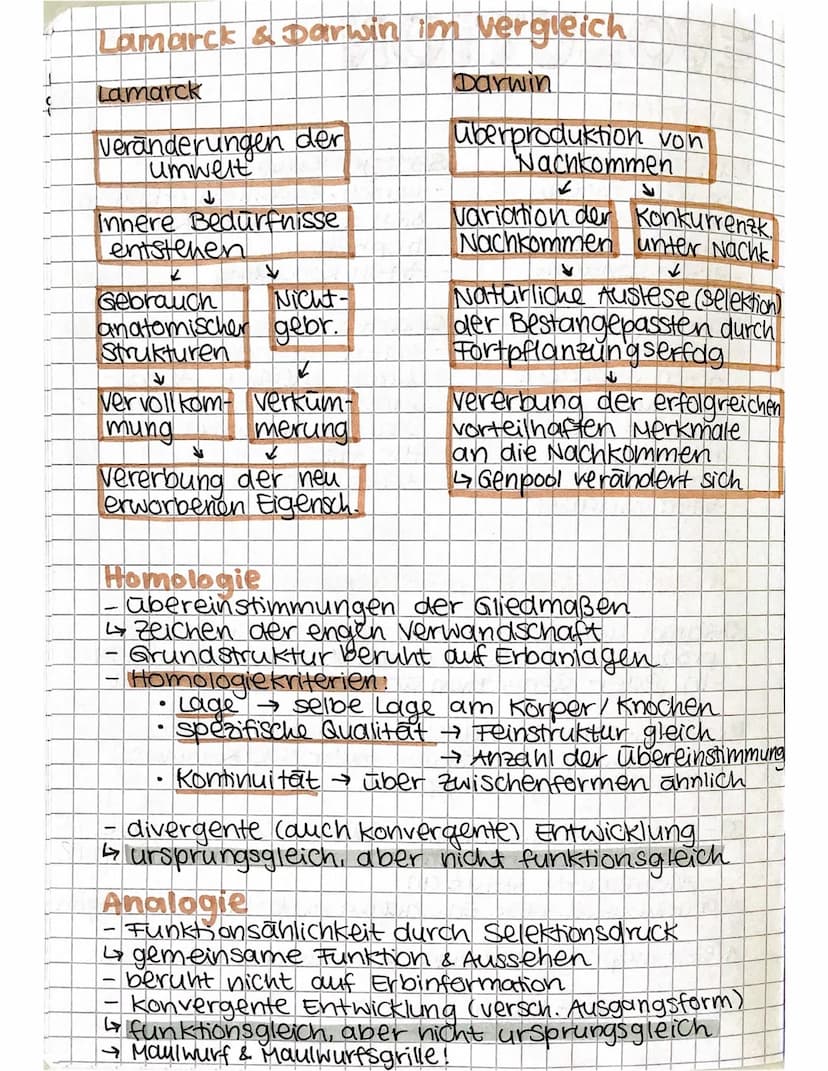 Lamarck & Darwin im Vergleich
Lamarck
Veränderungen der
Umwelt
Innere Bedürfnisse
entstehen
Gebrauch
anatomischer
Strukturen
Nicht-
gebr.
Vervollkom-
mung
Verküm-
merung
Vererbung der neu
erworbenen Eigensch.
Darwin
Überproduktion von
Nachkommen
Variation der
Nachkommen
Konkurrenzk.
unter Nachk.
Natürliche Auslese (Selektion)
der Bestangepassten durch
Fortpflanzungserfolg
Vererbung der erfolgreichen
vorteilhaften Merkmale
an die Nachkommen
↳ Genpool verändert sich
Homologie
- Übereinstimmungen der Gliedmaßen
↳ Zeichen der engen Verwandschaft
- Grundstruktur beruht auf Erbanlagen
- Homologiekriterien:
• Lage → selbe Lage am Körper/Knochen
• spezifische Qualität → Feinstruktur gleich
→ Anzahl der Übereinstimmung
• Kontinuität → über Zwischenformen ähnlich
- divergente (auch konvergente) Entwicklung
↳ ursprungsgleich, aber nicht funktionsgleich
Analogie
- Funktionsählichkeit durch Selektionsdruck
↳ gemeinsame Funktion & Aussehen
- beruht nicht auf Erbinformation
- Konvergente Entwicklung (versch. Ausgangsform)
↳ funktionsgleich, aber nicht ursprungsgleich
→ Maulwurf & Maulwurfsgrille!